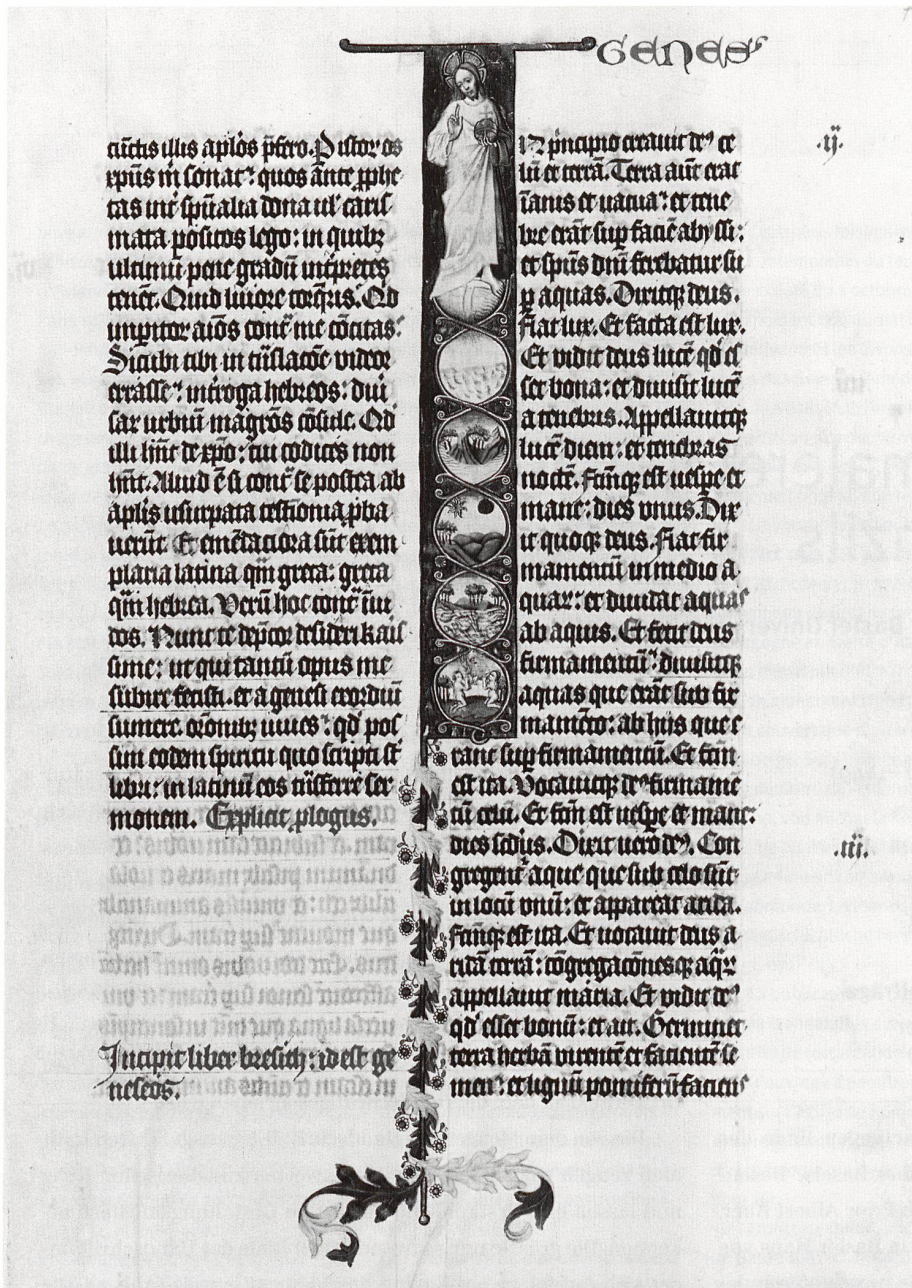 GENES
cunctis illis aplos p̄fero. P̱ istor os
xpūs m̄ sonat: quos ante ꝓphe
tas int̄ spūalia dona ul' caris
mata positos lego: in quibꝫ
ultimū pene gradū int̄pretes
tenēt. Quid liuore torq̄ris. Qd
impitor aīos cont̄ me cōcitas:
Sicubi tibi in t̄nslacōe videor
errasse: int̄roga hebreos: diu̇
sar̄ urbiū magr̄os cōsule. Qd
illi hn̄t de xpō: tui codices non
hn̄t. Aliud ē si cont̄ se postea ab
aplis usurpata testīonia ꝓba
uerūt. Et emēdaciora sūt exem
plaria latina qm̄ greca: greca
qm̄ hebrea. Verū hoc cont̄ īui
dos. Nunc te dep̄cor desideri kaiss
sime: ut qui tantū opus me
subire fecisti. et a genesi exordiū
sumere. or̄onibꝫ iuues: qd' pos
sim eodem spiritu quo scripti sт̄
libri: in latinū eos t̄nsferre ser
monem. Explicit ꝓlogus.
Incipit liber bresith: id est ge
neseos.
IN pricipio creauit de⁹ ce
lū et terrā. Terra aūt erat
īanis et uacua: et tene
bre erāt suꝑ faciē abyssi:
et spūs dnī ferebatur su
ꝑ aquas. Dixitqꝫ deus.
Fiat lux. Et facta est lux.
Et vidit deus lucē qd' es
set bona: et diuisit lucē
a tenebris. Appellauitqꝫ
lucē diem: et tenebras
noctē. Fc̄mqꝫ est uespe et
mane: dies vnus. Dix
it quoqꝫ deus. Fiat fir
mamentū in medio a
quaꝝ: et diuidat aquas
ab aquis. Et fecit deus
firmamentū: diuisitqꝫ
aquas que erāt sub fir
mamēto: ab hiis que e
rant suꝑ firmamentū. Et fc̄m
est ita. Vocauitqꝫ de⁹ firmamē
tū celū. Et fc̄m est uespe et mane:
dies scd̄us. Dixit uero de⁹. Con
gregent̄ aque que sub celo sūt
in locū vnū: et appareat arida.
Fc̄mqꝫ est ita. Et uocauit deus a
ridā terrā: cōgregacōnesqꝫ aqꝝ
appellauit maria. Et vidit de⁹
qd' esset bonū: et ait. Germinet
terra herbā virentē et facientē se
men: et lignū pomiferū faciens
.ij.
.iii.